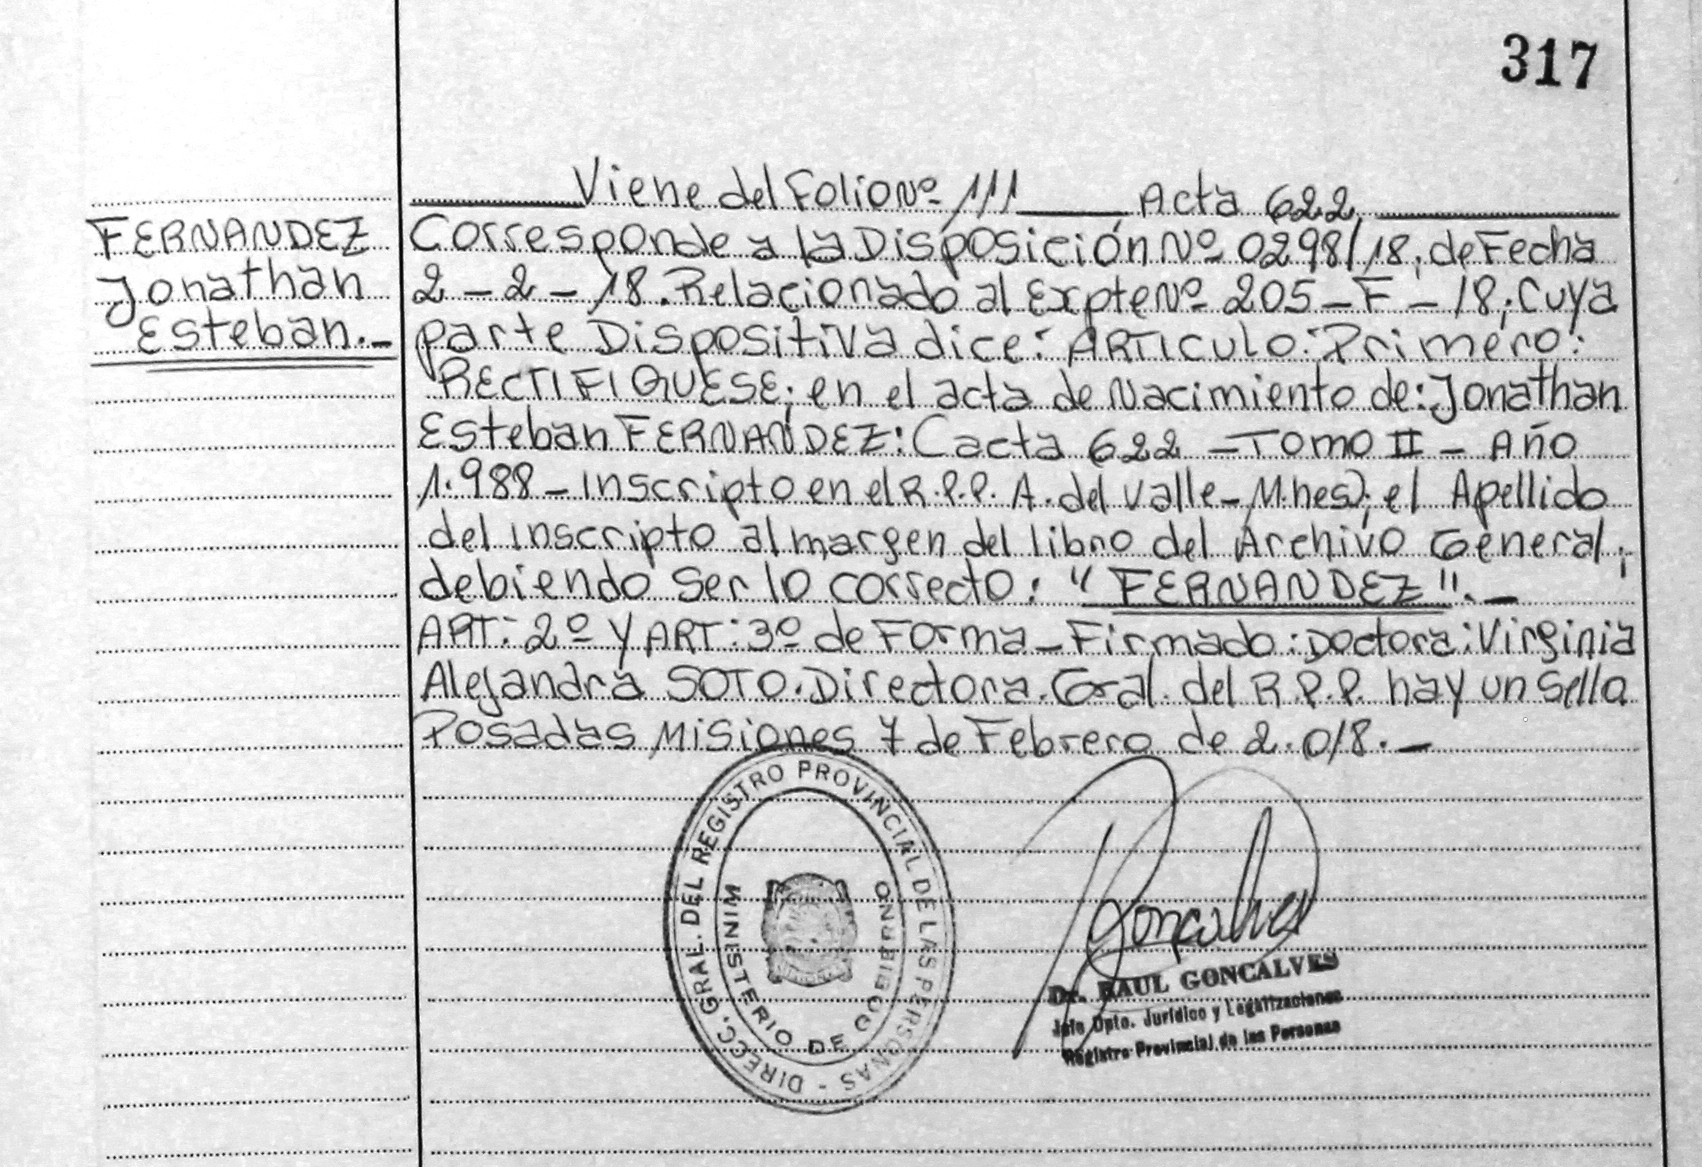 317
Viene del Folio Nº 111 Acta 622.
FERNANDEZ
Jonathan
Esteban.-
Corresponde a la Disposición Nº 0298/18, de Fecha
2-2-18. Relacionado al Expte Nº 205-F-18; cuya
parte Dispositiva dice: ARTICULO: Primero:
RECTIFIQUESE; en el acta de Nacimiento de: Jonathan
Esteban FERNANDEZ: Cacta 622 - Tomo II - Año
1.988 - Inscripto en el R.P.P. A. del Valle - Mnes); el Apellido
del inscripto al margen del libro del Archivo General;
debiendo ser lo correcto: "FERNANDEZ".-
ART: 2º y ART: 3º de Forma - Firmado: Doctora: Virginia
Alejandra SOTO. Directora. Gral. del R.P.P. hay un Sello
Posadas Misiones 7 de Febrero de 2.018.-
DIRECC. GRAL. DEL REGISTRO PROVINCIAL DE LAS PERSONAS -
MINISTERIO DE GOBIERNO
Goncalves
Dr. RAUL GONCALVES
Jefe Dpto. Jurídico y Legalizaciones
Registro Provincial de las Personas